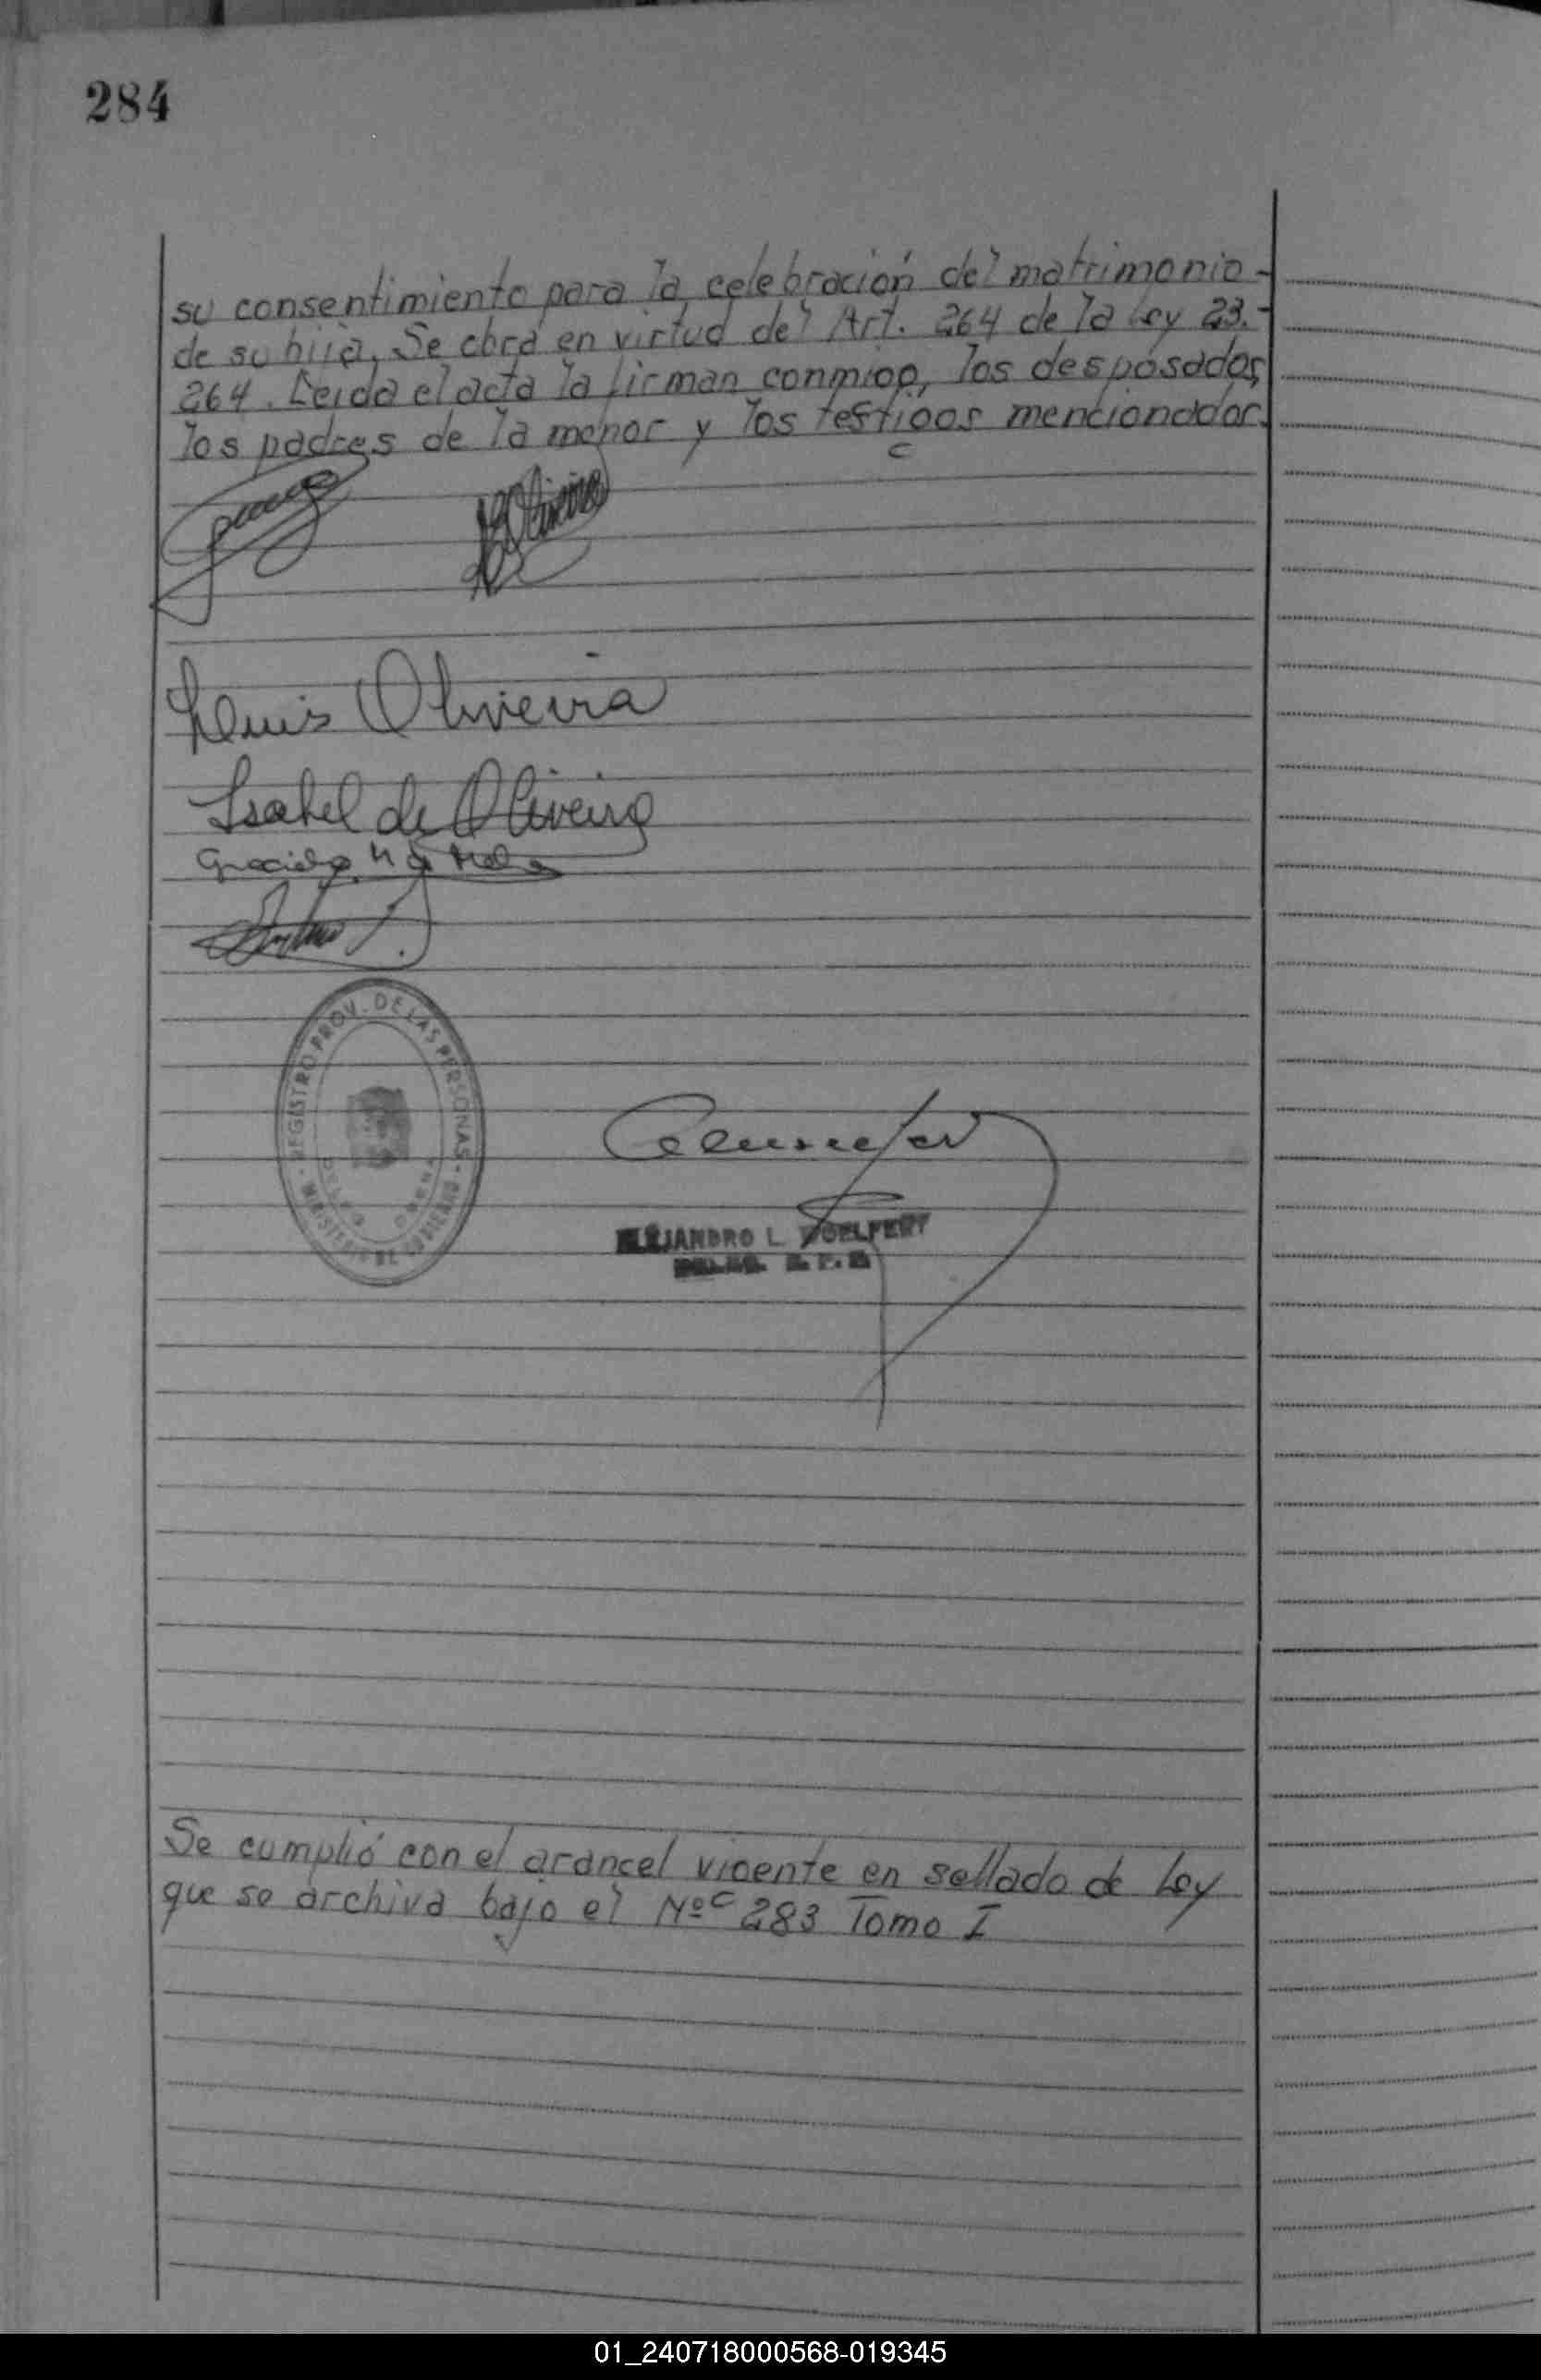 284
su consentimiento para la celebración del matrimonio-
de su hija. Se obra en virtud del Art. 264 de la Ley 23.-
264. Leida el acta la firman conmigo, los desposados,
los padres de la menor y los testigos mencionados.
Oliveira
Luis Oliveira
Isabel de Oliveira
Graciela M de
REGISTRO PROV. DE LAS PERSONAS - MINISTERIO DE GOBIERNO -
ALEJANDRO L. WOELFERT
Se cumplió con el arancel vigente en sellado de Ley
que se archiva bajo el Nº 283 Tomo I
01_240718000568-019345